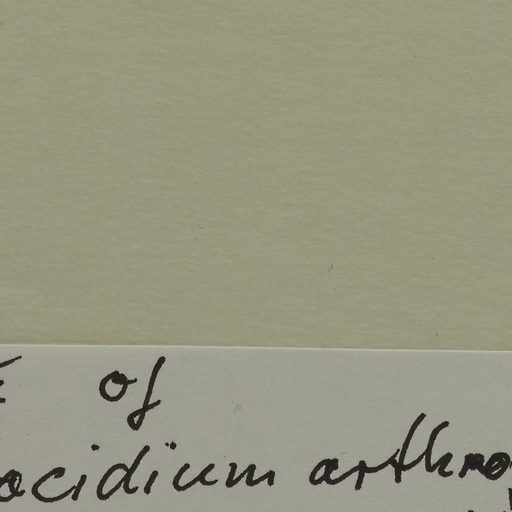 of
ocidium arthro